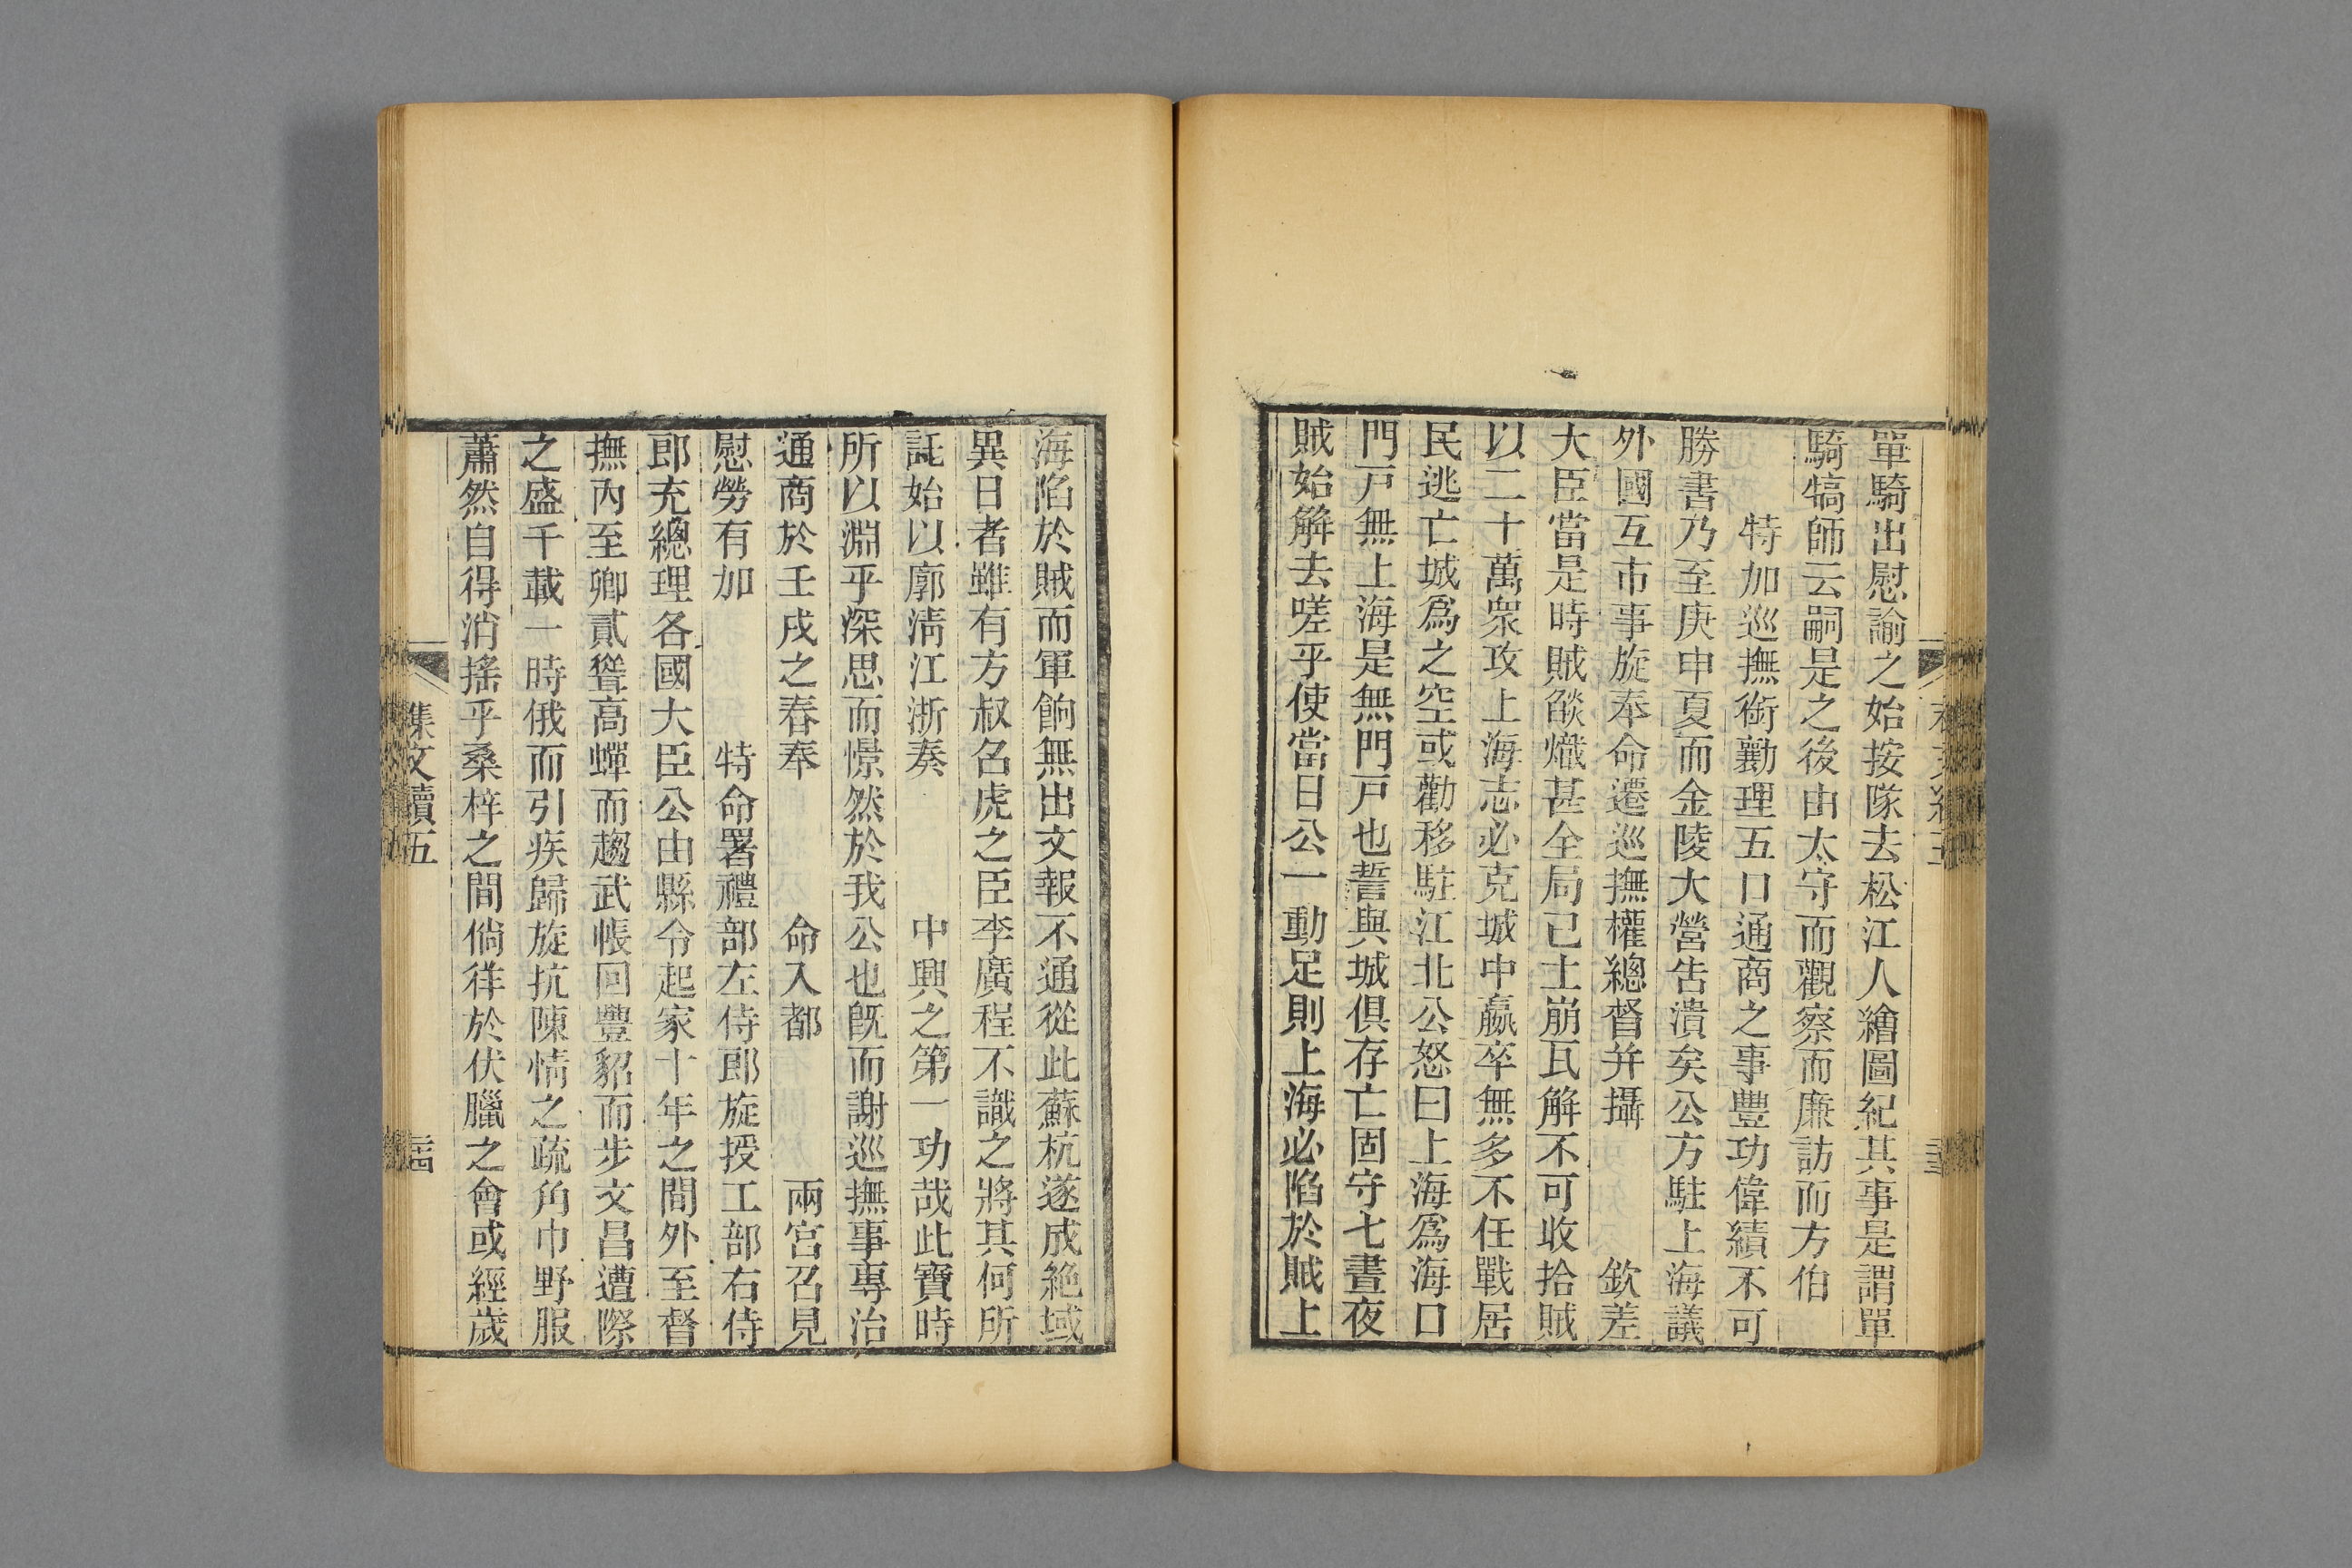 單騎出慰諭之始按隊去松江人繪圖紀其事是謂單
騎犒師云嗣是之後由太守而觀察而廉訪而方伯
特加巡撫銜勷理五口通商之事豐功偉績不可
勝書乃至庚申夏而金陵大營告潰矣公方駐上海議
外國互市事旋奉命遷巡撫權總督并攝　欽差
大臣當是時賊燄熾甚全局已土崩瓦解不可收拾賊
以二十萬衆攻上海志必克城中羸卒無多不任戰居
民逃亡城爲之空或勸移駐江北公怒曰上海爲海口
門戸無上海是無門戸也誓與城俱存亡固守七晝夜
賊始解去嗟乎使當日公一動足則上海必陷於賊上
海陷於賊而軍餉無出文報不通從此蘇杭遂成絶域
異日者雖有方叔召虎之臣李廣程不識之將其何所
託始以廓清江浙奏　中興之第一功哉此寶時
所以淵乎深思而憬然於我公也旣而謝巡撫事專治
通商於壬戌之春奉　命入都　兩宮召見
慰勞有加　特命署禮部左侍郎旋授工部右侍
郎充總理各國大臣公由縣令起家十年之間外至督
撫內至卿貳聳高蟬而趨武帳回豐貂而步文昌遭際
之盛千載一時俄而引疾歸旋抗陳情之疏角巾野服
蕭然自得消搖乎桑梓之間倘徉於伏臘之會或經歲
集文續五